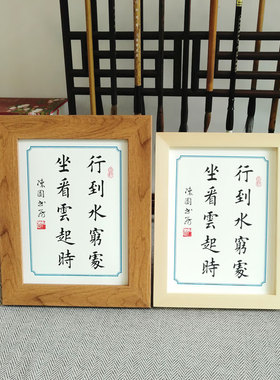 行到水窮處
坐看雲起時
行到水窮處
坐看雲起時